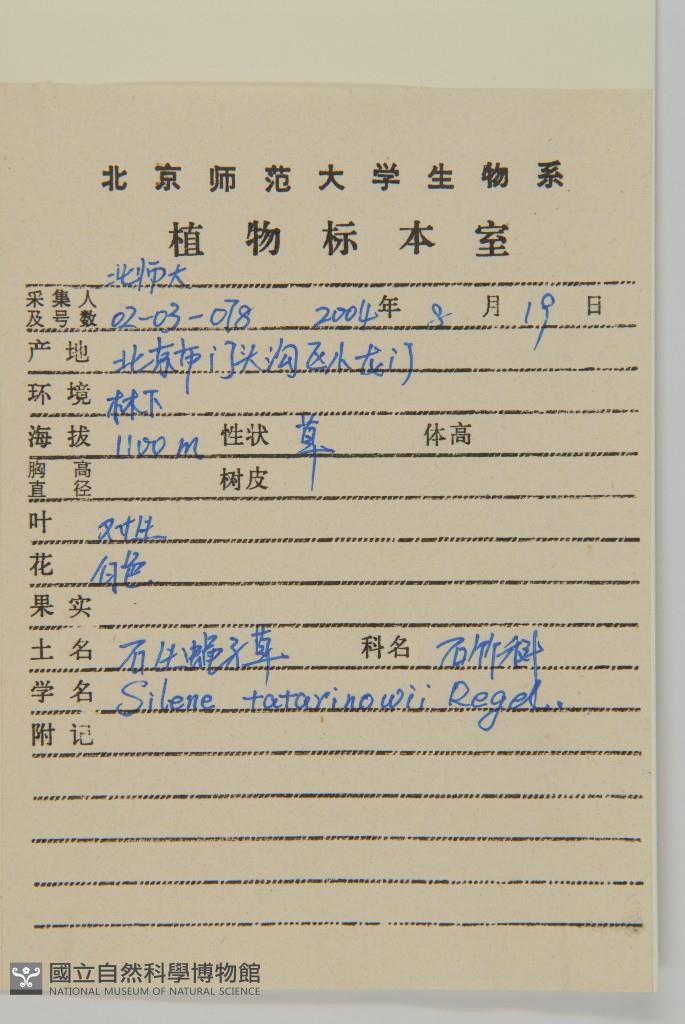 北京师范大学生物系
植物标本室
北师大
采集人
及号数 02-03-078 2004年 8月19日
产地 北京市门头沟区小龙门
环境 林下
海拔 1100m 性状 草 体高
胸高
直径 树皮
叶 对生
花 白色
果实
土名 石生蝇子草 科名 石竹科
学名 Silene tatarinowii Regel.
附记
國立自然科學博物館
NATIONAL MUSEUM OF NATURAL SCIENCE